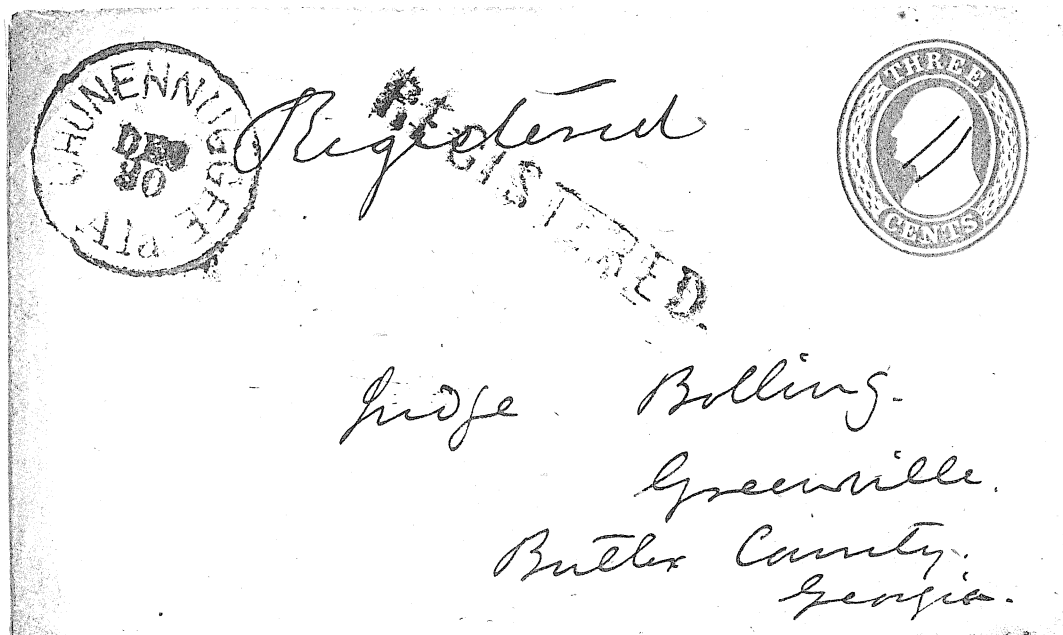 CHUNENNUGGEE
DEC
20
Registered
REGISTERED.
THREE
CENTS
Judge Bolling.
Greenville.
Butler County.
Georgia.